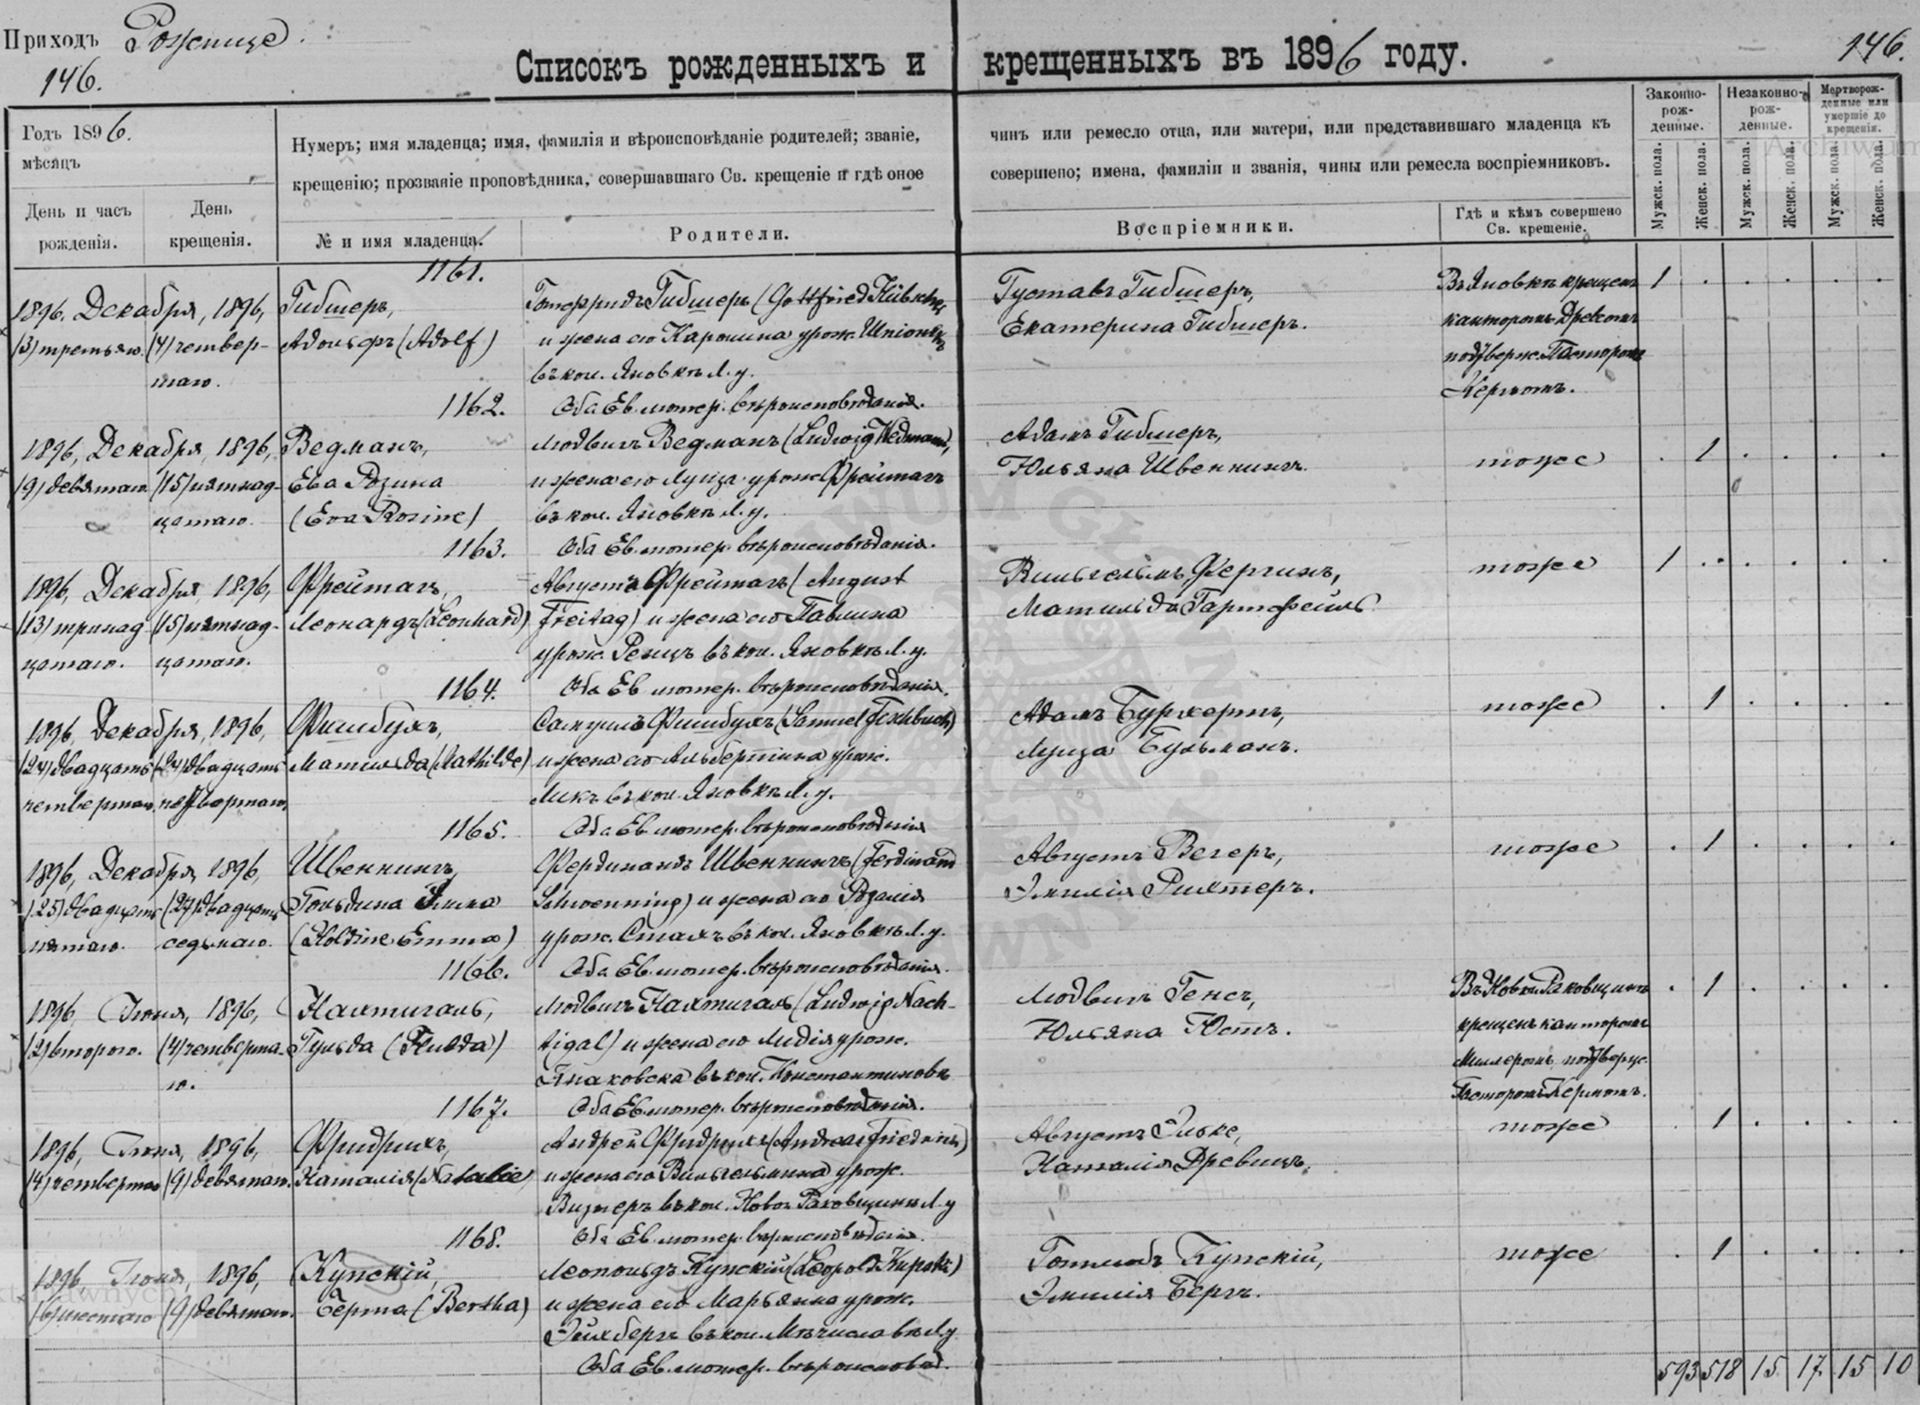 Приходъ Рожище.
146.
Списокъ рожденныхъ и крещенныхъ въ 1896 году.
146.
Годъ 1896.
мѣсяцъ
День и часъ рожденія.
День крещенія.
Нумеръ; имя младенца; имя, фамилія и вѣроисповѣданіе родителей; званіе,
крещенію; прозваніе проповѣдника, совершавшаго Св. крещеніе и гдѣ оное
№ и имя младенца.
Родители.
чинъ или ремесло отца, или матери, или представившаго младенца къ
совершено; имена, фамиліи и званія, чины или ремесла воспріемниковъ.
Воспріемники.
Гдѣ и кѣмъ совершено
Св. крещеніе.
Законно-
рож-
денные.
Незаконно-
рож-
денные.
Мертворож-
денные или
умершіе до
крещенія.
Мужск. пола.
Женск. пола.
Мужск. пола.
Женск. пола.
Мужск. пола.
Женск. пола.
1161.
1896, Декабря, 1896,
(3) третьяго (4) четвер-
таго.
Гибшеръ,
Адольфъ (Adolf)
Готфридъ Гибшеръ (Gottfried Hübscher)
и жена его Каролина урож.
въ кол. Яновкѣ Л. у.
Оба Ев. лютер. вѣроисповѣданія.
Густавъ Гибшеръ,
Екатерина Гибшеръ.
Въ Яновкѣ крещенъ
канторомъ
подтвержд. Пасторомъ
Кернтомъ.
1
1162.
1896, Декабря, 1896,
(9) девятаго (15) пятнад-
цатаго.
Ведманъ,
Ева Розина
(Eva Rosine)
Людвигъ Ведманъ (Ludwig Wedmann),
и жена его Луиза урож. Фрейтагъ
въ кол. Яновкѣ Л. у.
Оба Ев. лютер. вѣроисповѣданія.
Адамъ Гибшеръ,
Юльяна Швеннингъ.
тоже
1
1163.
1896, Декабря, 1896,
(13) тринад- (15) пятнад-
цатаго. цатаго.
Фрейтагъ,
Леонардъ (Leonhard)
Августъ Фрейтагъ (August
Freitag) и жена его Павлина
урож. Ренцъ въ кол. Яновкѣ Л. у.
Оба Ев. лютер. вѣроисповѣданія.
Вильгельмъ Фергинъ,
Матильда Гартфейль
тоже
1
1164.
1896, Декабря, 1896,
(24) двадцать (24) двадцать
четвертаго четвертаго.
Фишбухъ,
Матильда (Mathilde)
Самуилъ Фишбухъ (Samuel Fischbuch)
и жена его Альбертина урож.
Микъ въ кол. Яновкѣ Л. у.
Оба Ев. лютер. вѣроисповѣданія
Адамъ Бурхертъ,
Луиза Бульманъ.
тоже
1
1165.
1896, Декабря, 1896,
(25) двадцать (27) двадцать
пятаго. седьмаго.
Швеннингъ,
Гольдина Эмма
(Holdine Emma)
Фердинандъ Швеннингъ (Ferdinand
Schwenning) и жена его Розалія
урож. Сталъ въ кол. Яновкѣ Л. у.
Оба Ев. лютер. вѣроисповѣданія.
Августъ Вегеръ,
Эмилія Рихтеръ.
тоже
1
1166.
1896, Іюня, 1896,
(2) втораго. (4) четверта-
го.
Нахтигаль,
Гульда (Hulda)
Людвигъ Нахтигаль (Ludwig Nach-
tigal) и жена его Лидія урож.
въ кол. Константиновкѣ
Оба Ев. лютер. вѣроисповѣданія.
Людвигъ Генсъ,
Юльяна Юстъ.
Въ Новой Раковщинѣ
крещенъ канторомъ
Миллеромъ подтвержд.
Пасторомъ Кернтомъ.
1
1167.
1896, Іюня, 1896,
(4) четвертаго (9) девятаго.
Фридрихъ,
Наталія (Natalie)
Андрей Фридрихъ (Andreas Friedrich)
и жена его Вильгельмина урож.
Вигнеръ въ кол. Новой Раковщинѣ Л. у
Оба Ев. лютер. вѣроисповѣданія.
Августъ Эльке,
Наталія Древицъ.
тоже
1
1168.
1896, Іюня, 1896,
(6) шестаго (9) девятаго.
Купскій,
Берта (Bertha)
Леопольдъ Купскій (Leopold Kupski)
и жена его Марьянна урож.
Эйхбергъ въ кол. Мечиславкѣ Л. у
Оба Ев. лютер. вѣроисповѣд.
Готлибъ Купскій,
Эмилія Бергъ.
тоже
1
593 518 15 17 15 10